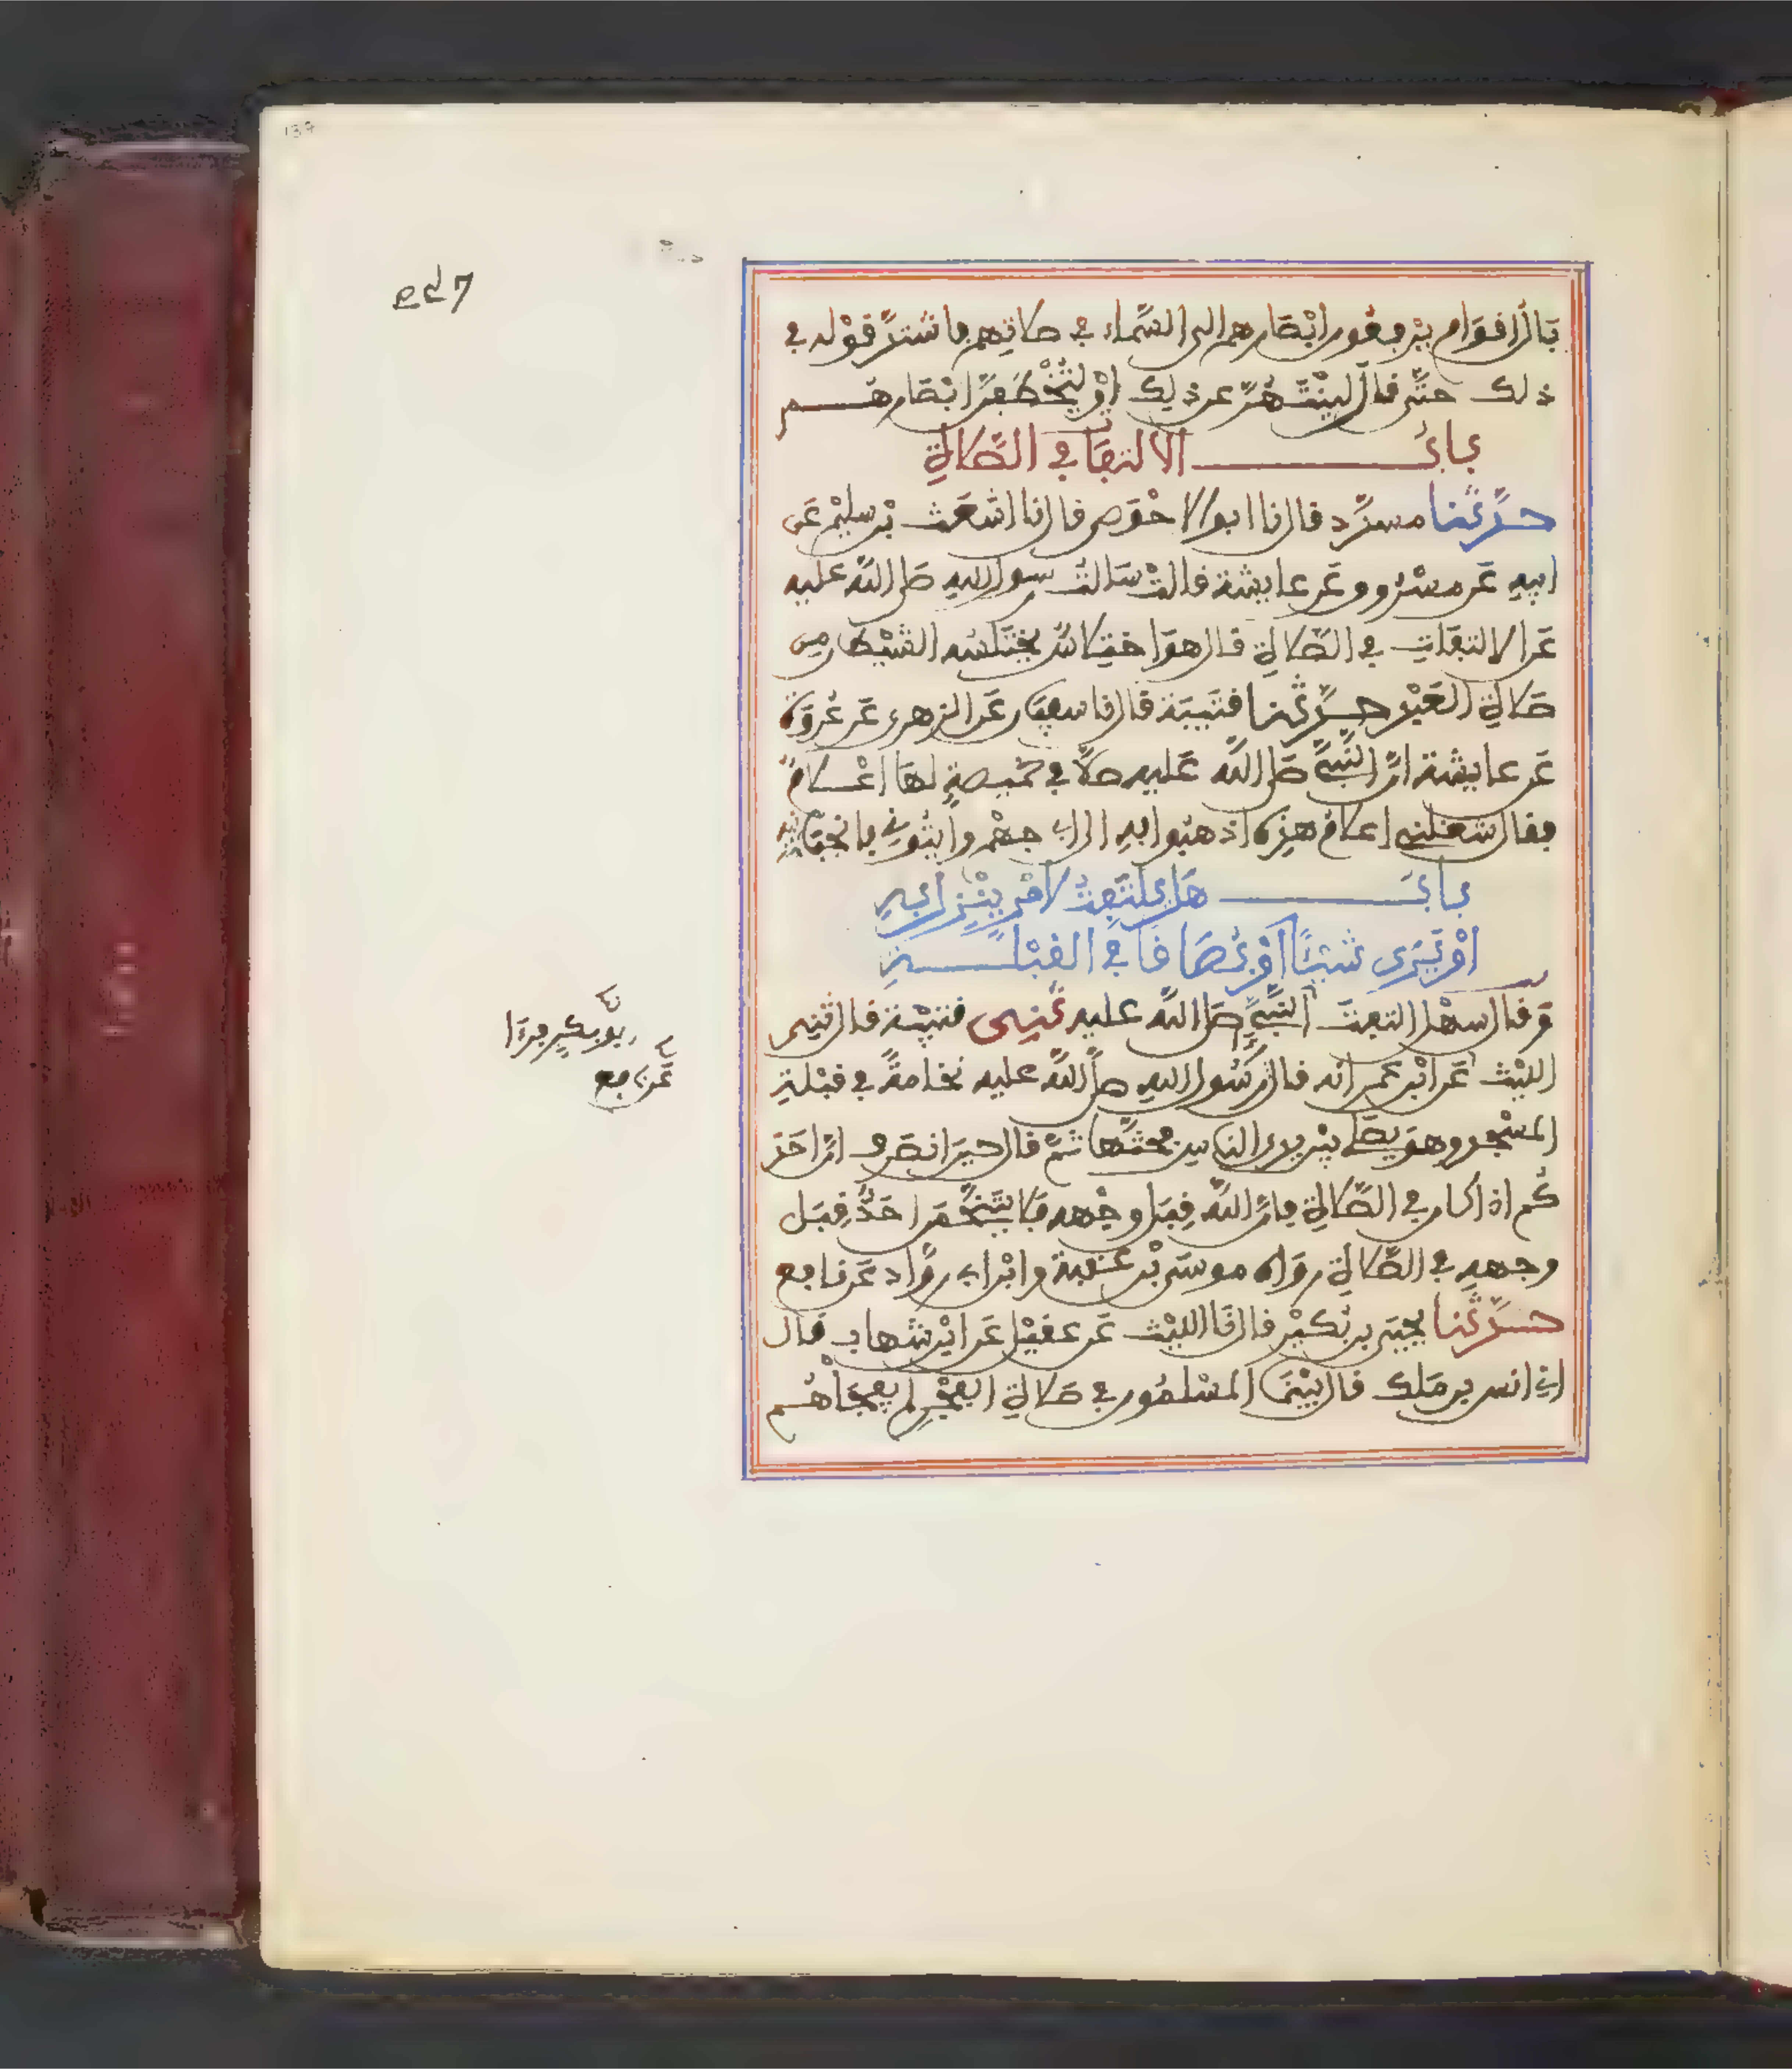 بَالُ اقوَام يرفعون ابْصَارهم الى السَّماء في صلاتِهم فاشتدَّ قوْله في
ذلك حتَّى قال لينْتَهُنَّ عن ذلك اوْ لتُخْطَفَنَّ ابْصَارهُم
بابُ الالتفات في الصَّلاةِ
حدَّثنا مسدَّد قال نا ابو الاحْوَص قال نا اشعَث بْن سليْم عَن
ابيهِ عَن مسْرُوق عَن عايشة قالتْ سَالتُ رسول اللهِ صَلى اللَّه عليه
عَن الالتفَاتِ في الصَّلاةِ قال هوَ اختِلاسٌ يختَلسُه الشيْطان مِن
صَلاةِ العَبْد حدَّثنا قتَيبَة قال نا سفيَان عَن الزهري عَن عُروَة
عَن عايشة انَّ النَّبيَّ صَلى اللَّه عَليه صلَّى في خميصةٍ لهَا اعْلامٌ
فقال شغلني اعلامُ هذِه اذهبُوا بهِ الى ابي جهْم وايتُوني بانبجَانية
بابُ هَل يلتَفِتُ لامْرٍ ينْزِل بهِ
اوْ يَرَى شيْئًا اوْ بُصَاقا في القبْلةِ
وَقال سهْل التفتَ النَّبيّ صَلى اللَّه عليه ثني قتيْبَة قال ثني
الليْث عَن ابْن عمر انه قال رَسُول اللهِ صلى اللَّه عليه نخامةً في قبْلةِ
المسْجد وهوَ يصَلي بيْن يدي النَّاس فحتَّها ثمَّ قال حينَ انصَرف انَّ احَدَ
كُم اذا كان في الصَّلاةِ فانَّ اللَّه قِبَل وجْهه فلَا يتَنَخَّمَن احَدٌ قِبَل
وجههِ في الصَّلاةِ روَاه موسَى بْن عقبة وابْن ابي روَّاد عَن نافع
حدَّثنا يحيَى بن بُكيْر قال نَا الليْث عَن عقيْل عَن ابْن شهاب قال
اني انس بن مَلك قال بيْنمَا المسْلمُون في صَلاةِ الفجْرِ لم يفجَأْهُم
عَن نافع